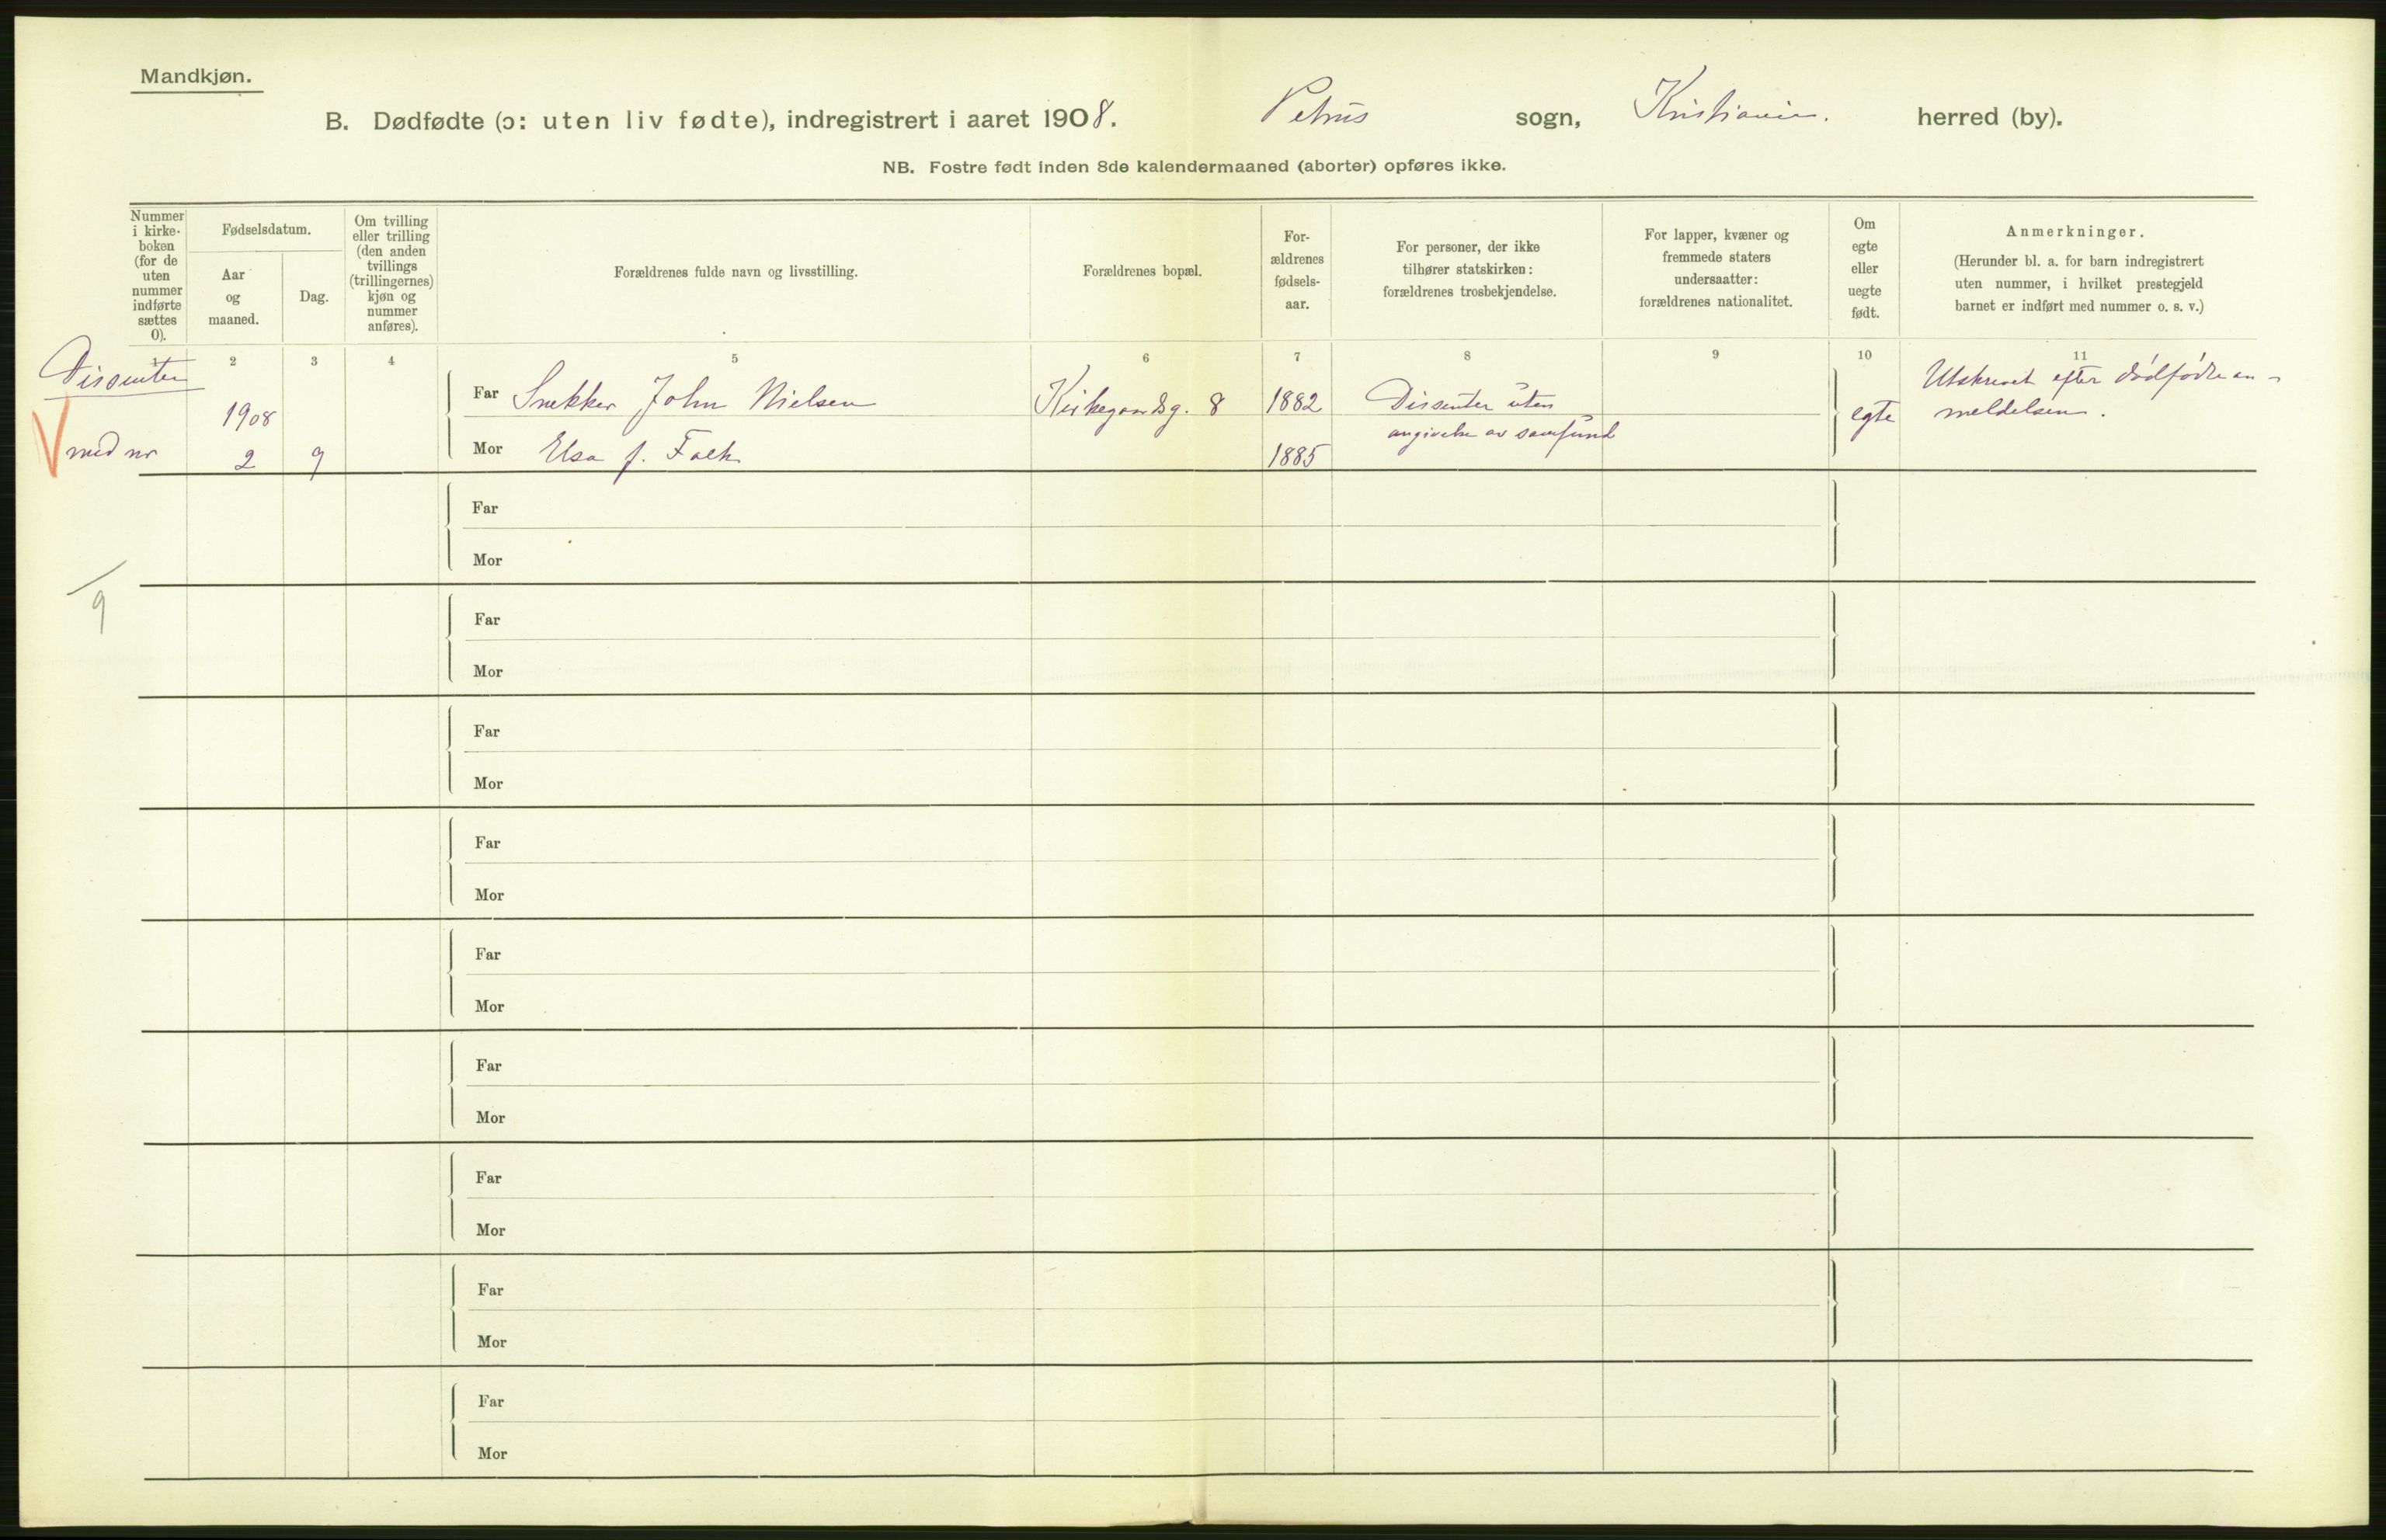 Mandkjøn.
B. Dødfødte (ɔ: uten liv fødte), indregistrert i aaret 1908. Petrus sogn, Kristiania. herred (by).
NB. Fostre født inden 8de kalendermaaned (aborter) opføres ikke.
Nummer
i kirke-
boken
(for de
uten
nummer
indførte
sættes
0).
Fødselsdatum.
Aar
og
maaned.
Dag.
Om tvilling
eller trilling
(den anden
tvillings
(trillingernes)
kjøn og
nummer
anføres).
Forældrenes fulde navn og livsstilling.
Forældrenes bopæl.
For-
ældrenes
fødsels-
aar.
For personer, der ikke
tilhører statskirken:
forældrenes trosbekjendelse.
For lapper, kvæner og
fremmede staters
undersaatter:
forældrenes nationalitet.
Om
egte
eller
uegte
født.
Anmerkninger.
(Herunder bl. a. for barn indregistrert
uten nummer, i hvilket prestegjeld
barnet er indført med nummer o. s. v.)
1 2 3 4 5 6 7 8 9 10 11
Dissenter
med nr
1908
2 9
Far Snekker John Nielsen
Mor Elsa f. Falk
Kirkegaardsg. 8
1882
1885
Dissenter uten
angivelse av samfund
egte
Utskrevet efter dødfødtean-
meldelsen.
Far
Mor
9
Far
Mor
Far
Mor
Far
Mor
Far
Mor
Far
Mor
Far
Mor
Far
Mor
Far
Mor